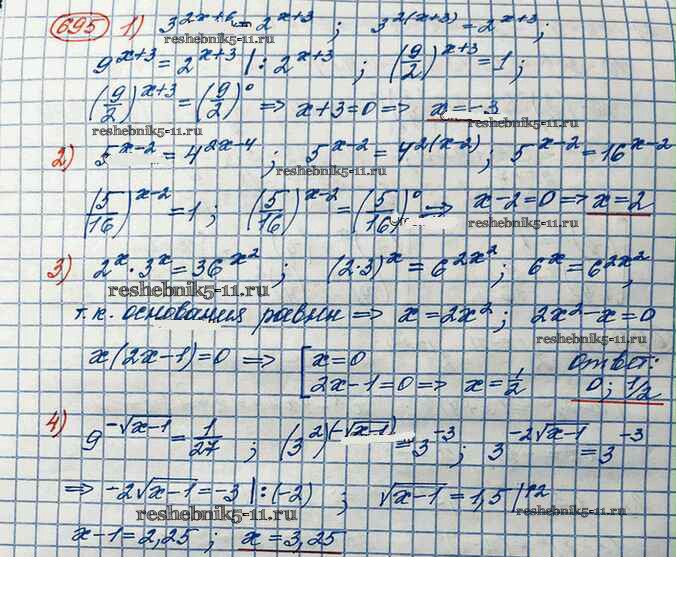 695 1) 3^(2x+6) = 2^(x+3) ; 3^(2(x+3)) = 2^(x+3) ;
9^(x+3) = 2^(x+3) |: 2^(x+3) ; (9/2)^(x+3) = 1 ;
(9/2)^(x+3) = (9/2)^0 => x+3=0 => x=-3
reshebnik5-11.ru
reshebnik5-11.ru
2) 5^(x-2) = 4^(2x-4) ; 5^(x-2) = 4^(2(x-2)) ; 5^(x-2) = 16^(x-2)
reshebnik5-11.ru
reshebnik5-11.ru
(5/16)^(x-2) = 1 ; (5/16)^(x-2) = (5/16)^0 => x-2=0 => x=2
reshebnik5-11.ru
3) 2^x · 3^x = 36^(x^2) ; (2·3)^x = 6^(2x^2) ; 6^x = 6^(2x^2) ,
reshebnik5-11.ru
т.к. основания равны => x = 2x² ; 2x²-x=0
reshebnik5-11.ru
x(2x-1)=0 => [ x=0
2x-1=0 => x=1/2 ответ: 0; 1/2
4) 9^(-√(x-1)) = 1/27 ; (3²)^(-√(x-1)) = 3^(-3) ; 3^(-2√(x-1)) = 3^(-3)
=> -2√(x-1) = -3 |:(-2) ; √(x-1) = 1,5 |↑2
reshebnik5-11.ru
reshebnik5-11.ru
x-1=2,25 ; x=3,25
reshebnik5-11.ru